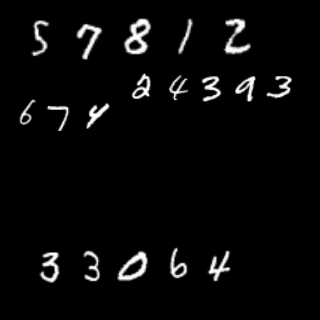 57812
24393
674
33064